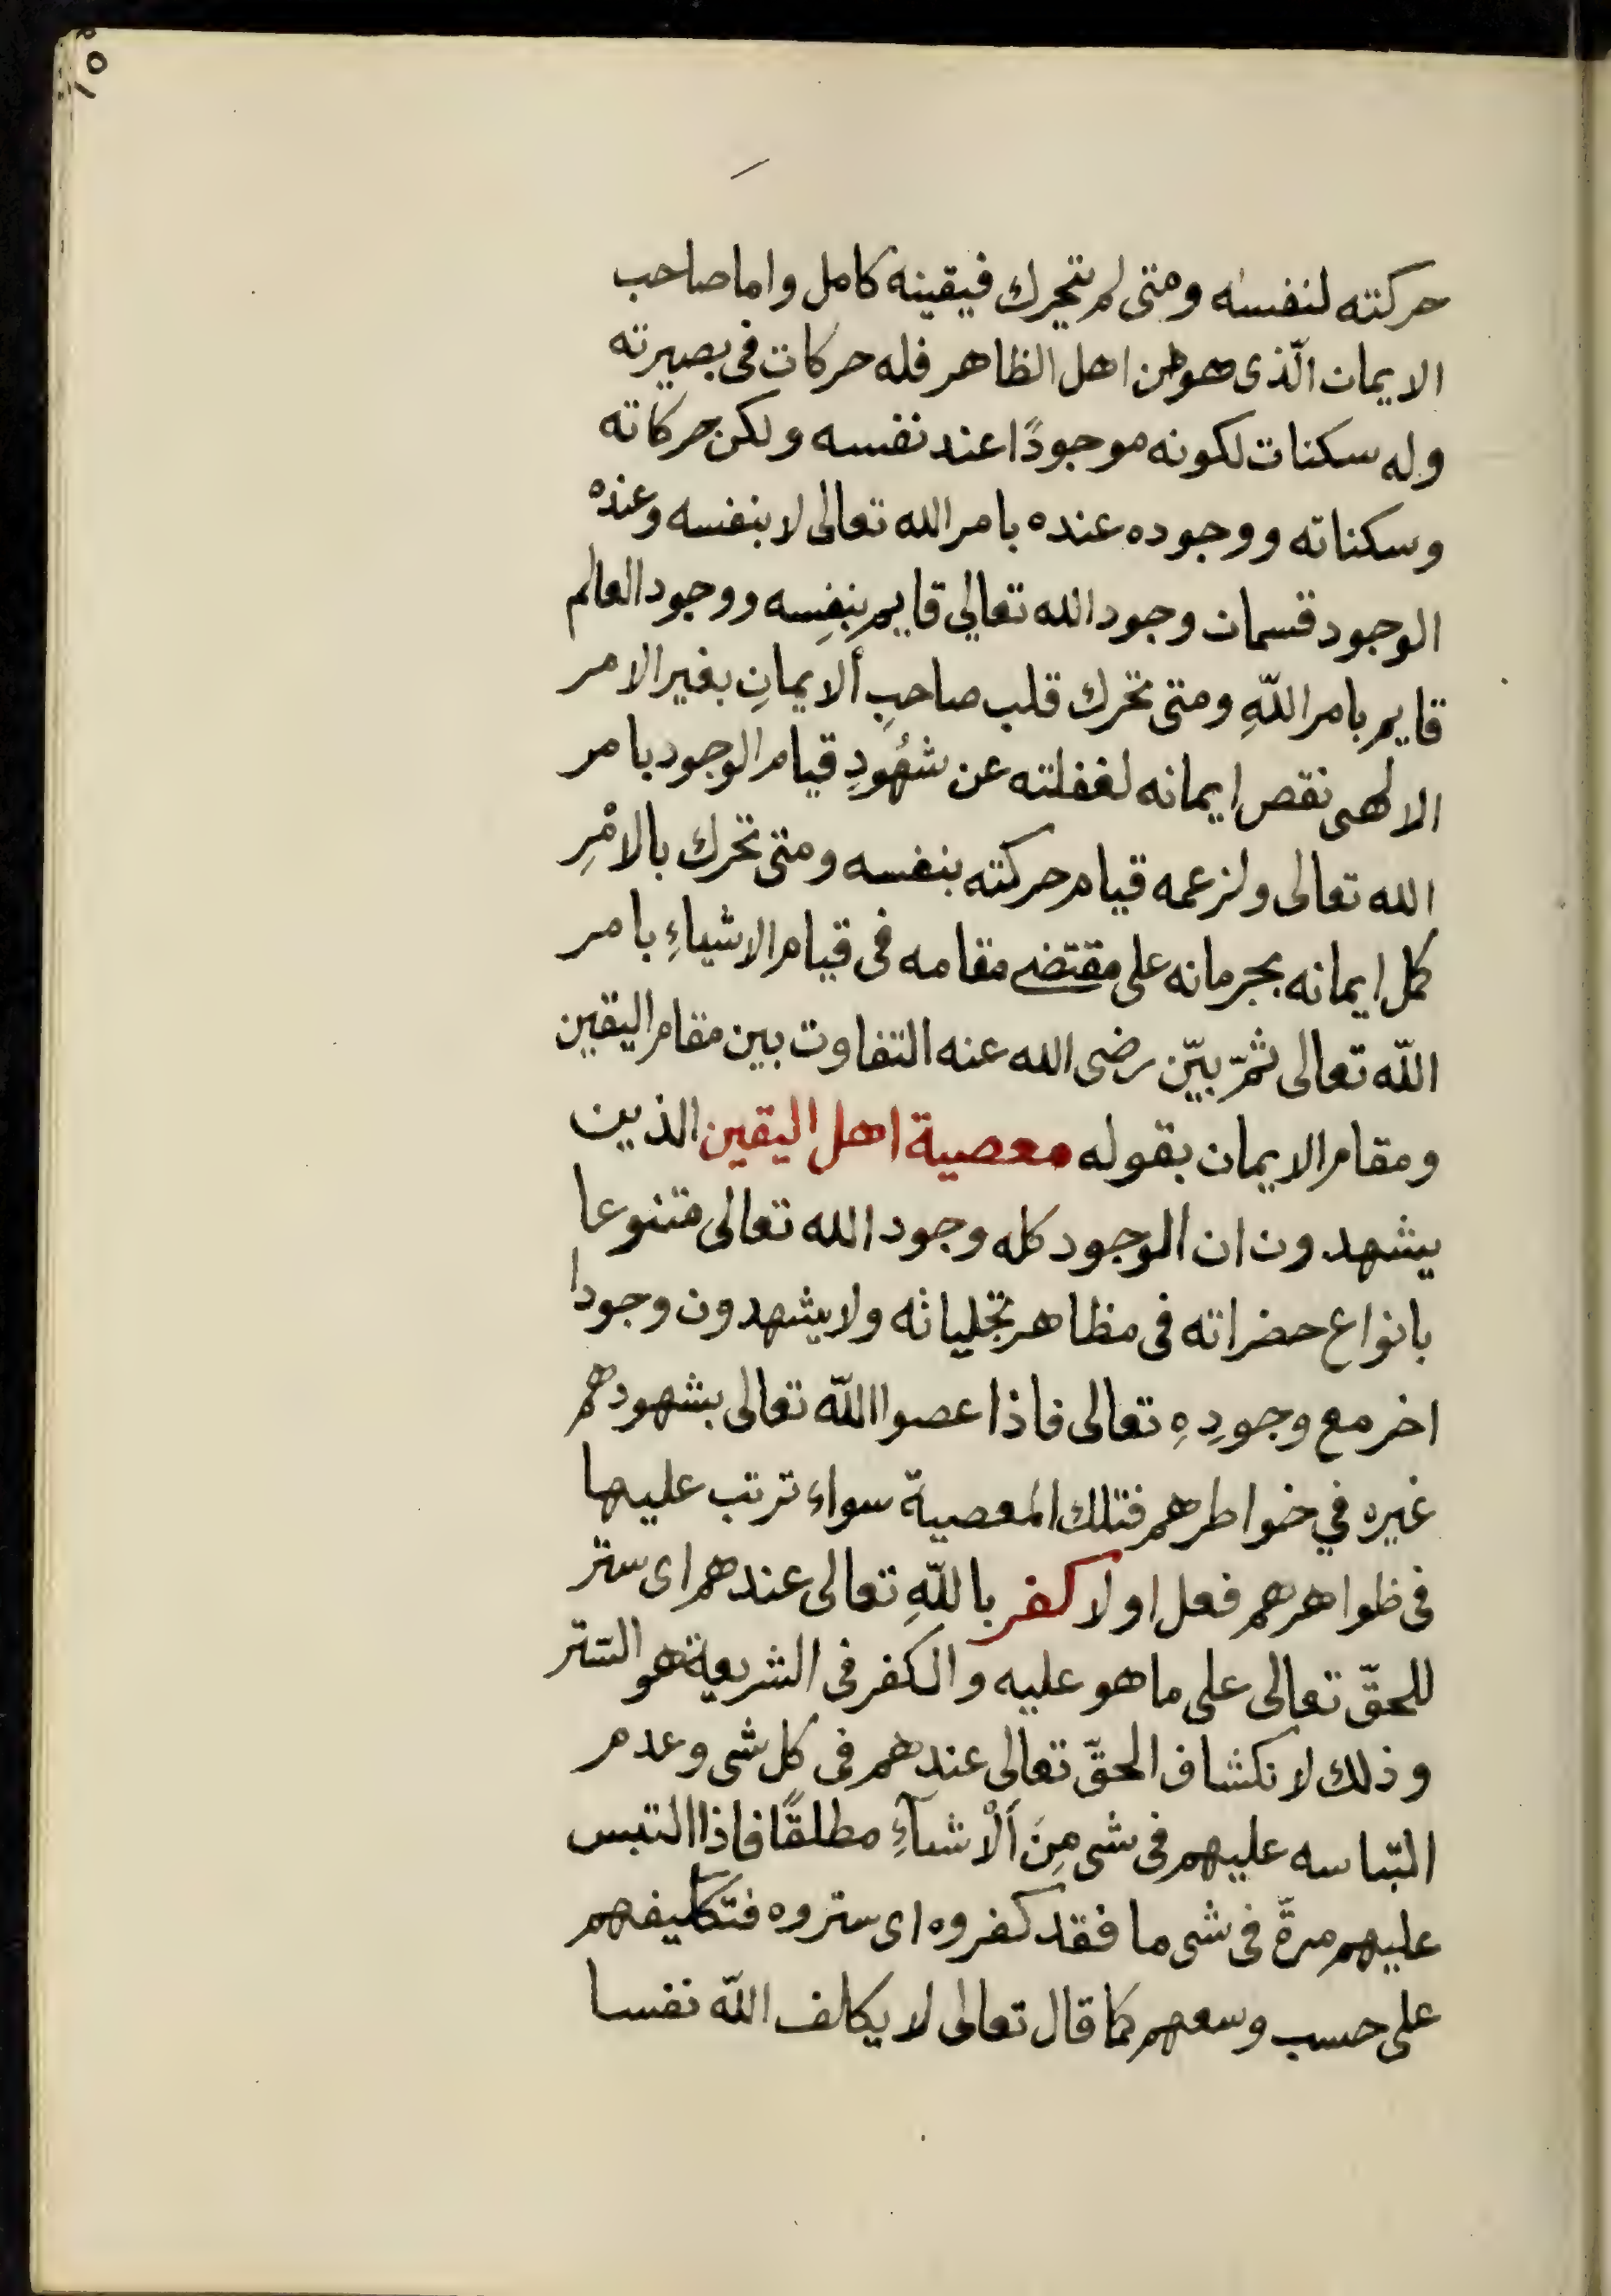 حركته لنفسه ومتى لم يتحرك فيقينه كامل واما صاحب
الايمان الّذى هو من اهل الظاهر فله حركات فى بصيرته
وله سكنات لكونه موجودًا عند نفسه ولكن حركاته
وسكناته ووجوده عنده بامر الله تعالى لا بنفسه وعنده
الوجود قسمان وجود الله تعالى قايم بنفسه ووجود العالم
قايم بامر اللّهِ ومتى تحرك قلب صاحبِ الايمانِ بغير الامر
الالهى نقص ايمانه لغفلته عن شهُودِ قيام الوجود بامر
الله تعالى ولزعمه قيام حركته بنفسه ومتى تحرك بالامْرِ
كمل ايمانه بجرمانه على مقتضى مقامه فى قيام الاشياءِ بامر
اللّه تعالى ثمّ بيّن رضى الله عنه التفاوت بين مقام اليقين
ومقام الايمان بقوله معصية اهل اليقين الذين
يشهدون ان الوجود كله وجود الله تعالى متنوعا
بانواع حضراته فى مظاهر تجلياته ولا يشهدون وجودا
اخر مع وجودِهِ تعالى فاذا عصوا اللّه تعالى بشهودهم
غيره في خواطرهم فتلك المعصية سواء ترتب عليها
فى ظواهرهم فعل او لا كفر باللّهِ تعالى عندهم اى ستر
للحقّ تعالى على ما هو عليه والكفر فى الشريعة هو الستر
وذلك لانكشاف الحقّ تعالى عندهم فى كل شى وعدم
التباسه عليهم فى شى مِنَ اَلْاشيآءِ مطلقًا فاذا التبس
عليهم مرةّ فى شى ما فقد كفروه اى ستروه فتكليفهم
على حسب وسعهم كما قال تعالى لا يكلف اللّه نفسا